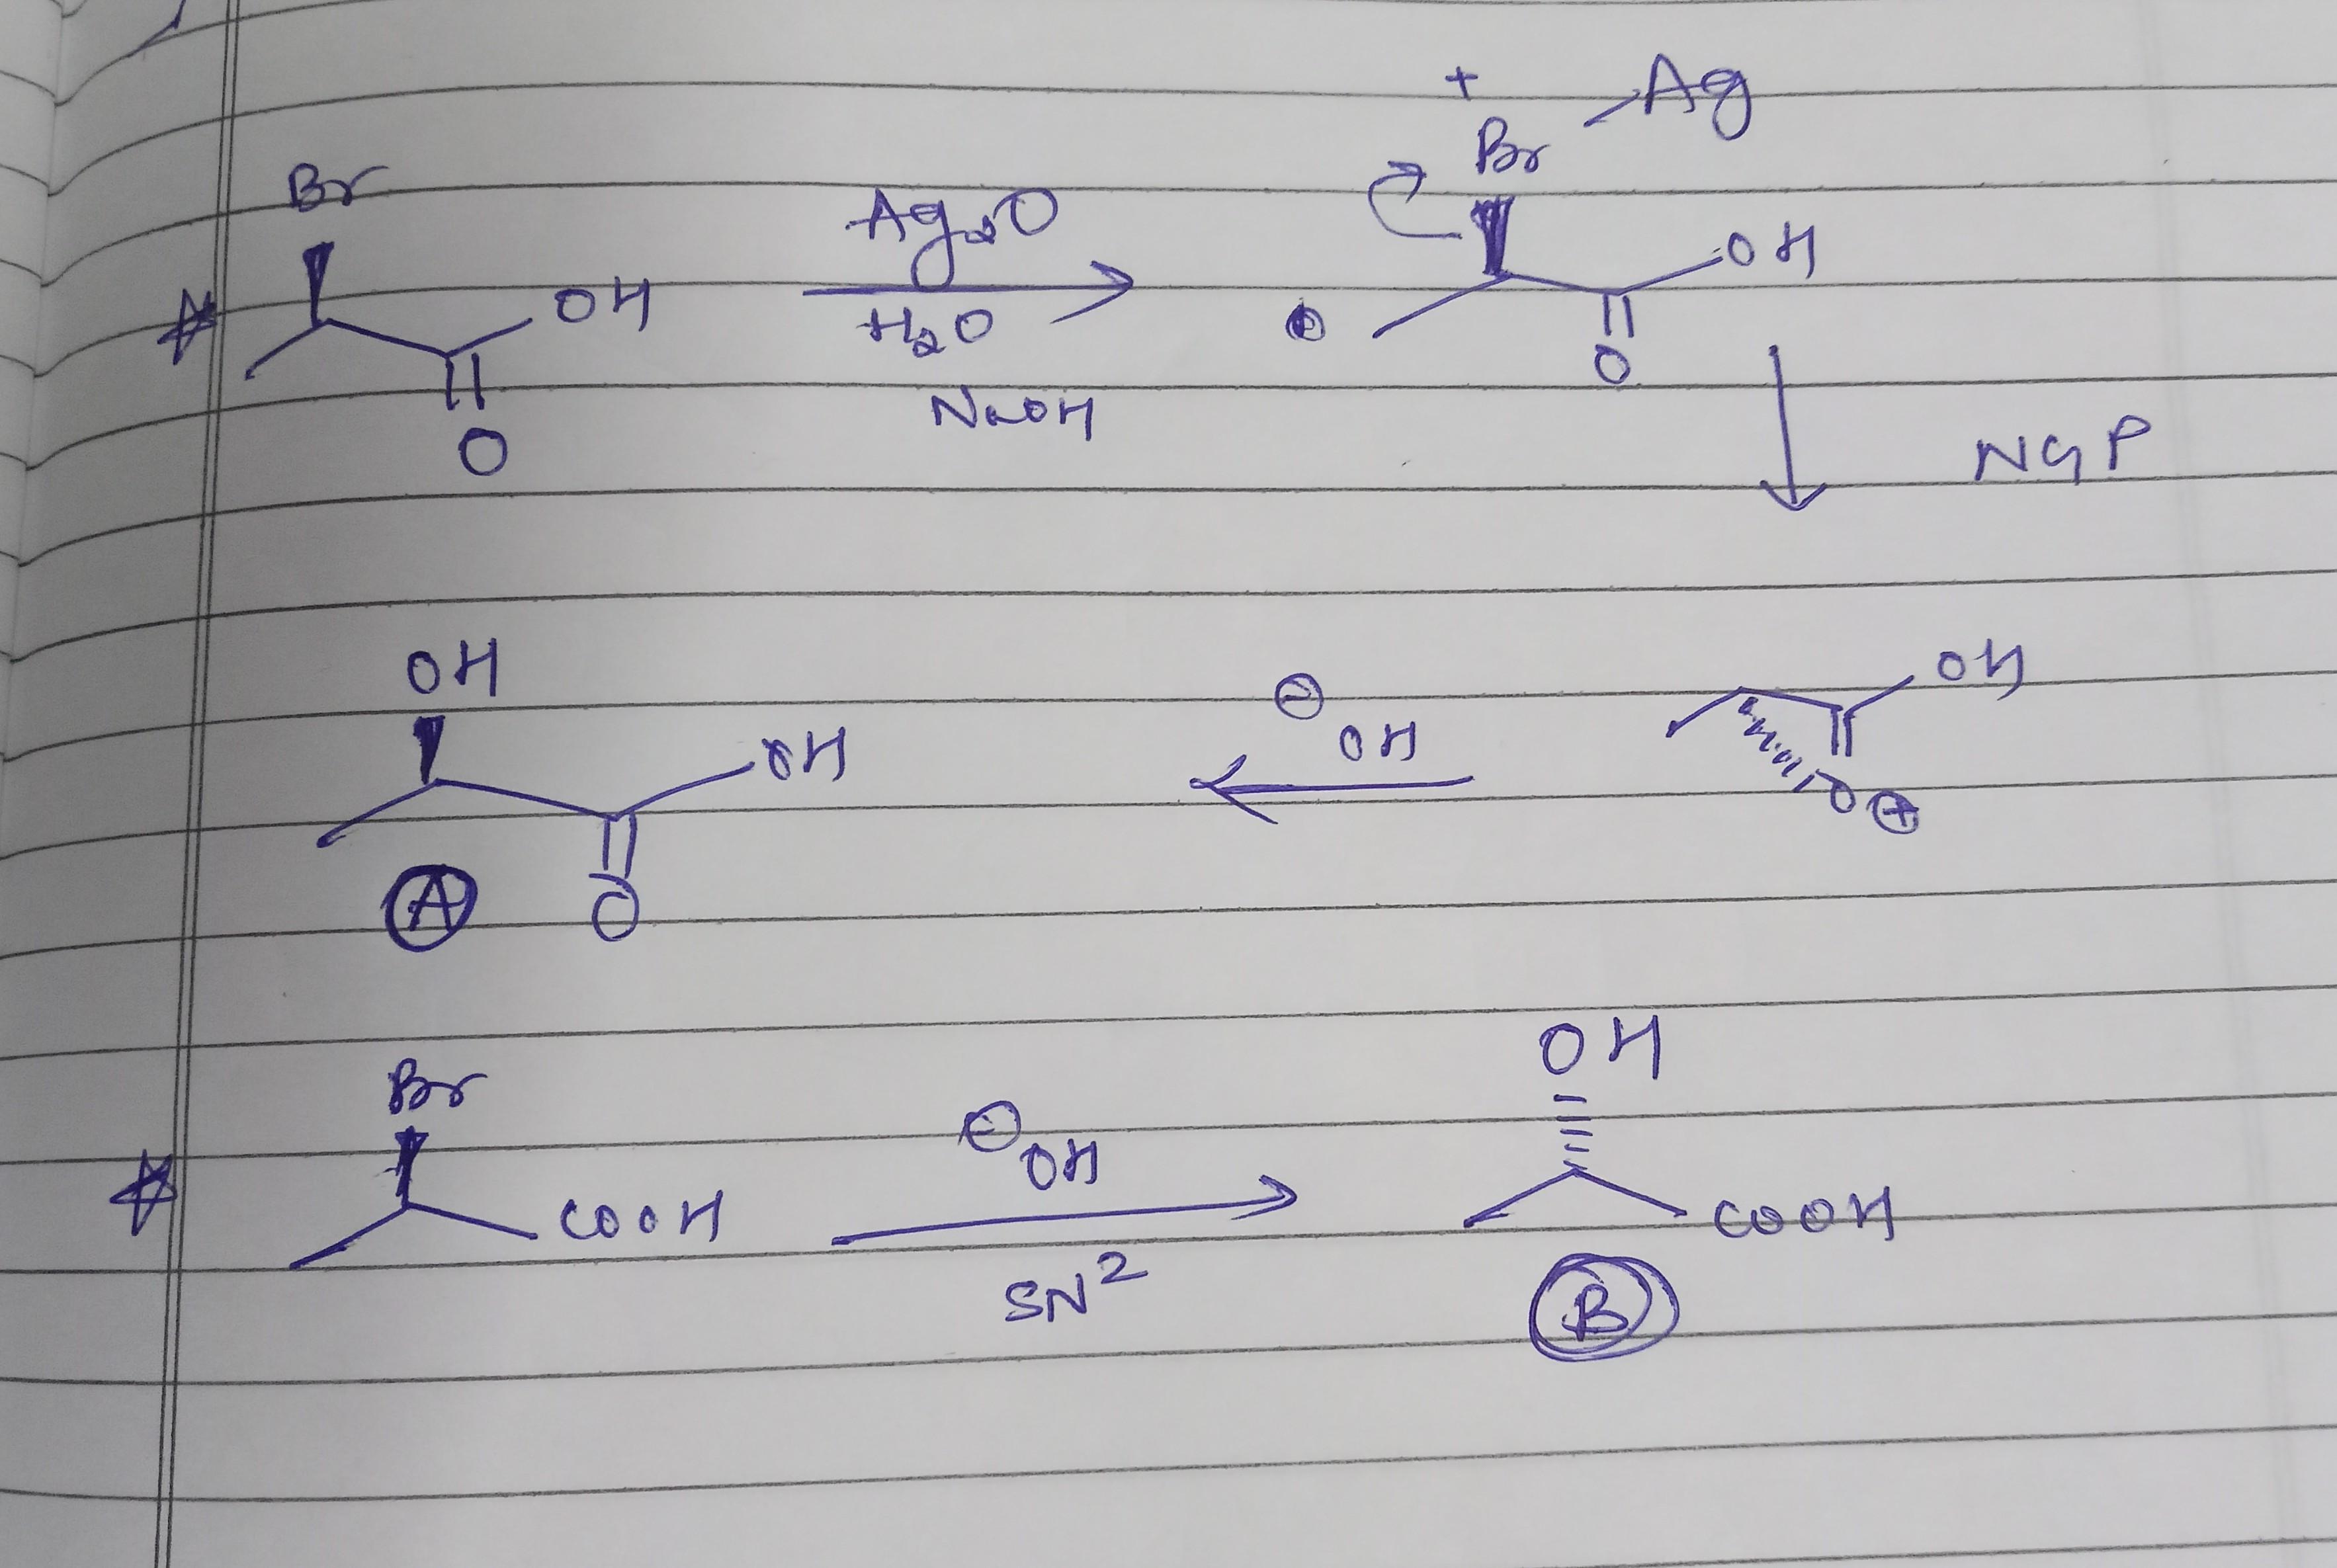 Br
OH
O
Ag₂O
H₂O
NaOH
+
Br Ag
OH
⊕
O
NGP
OH
OH
O
A
⊖
OH
OH
O⊕
Br
COOH
⊖OH
SN²
OH
COOH
B